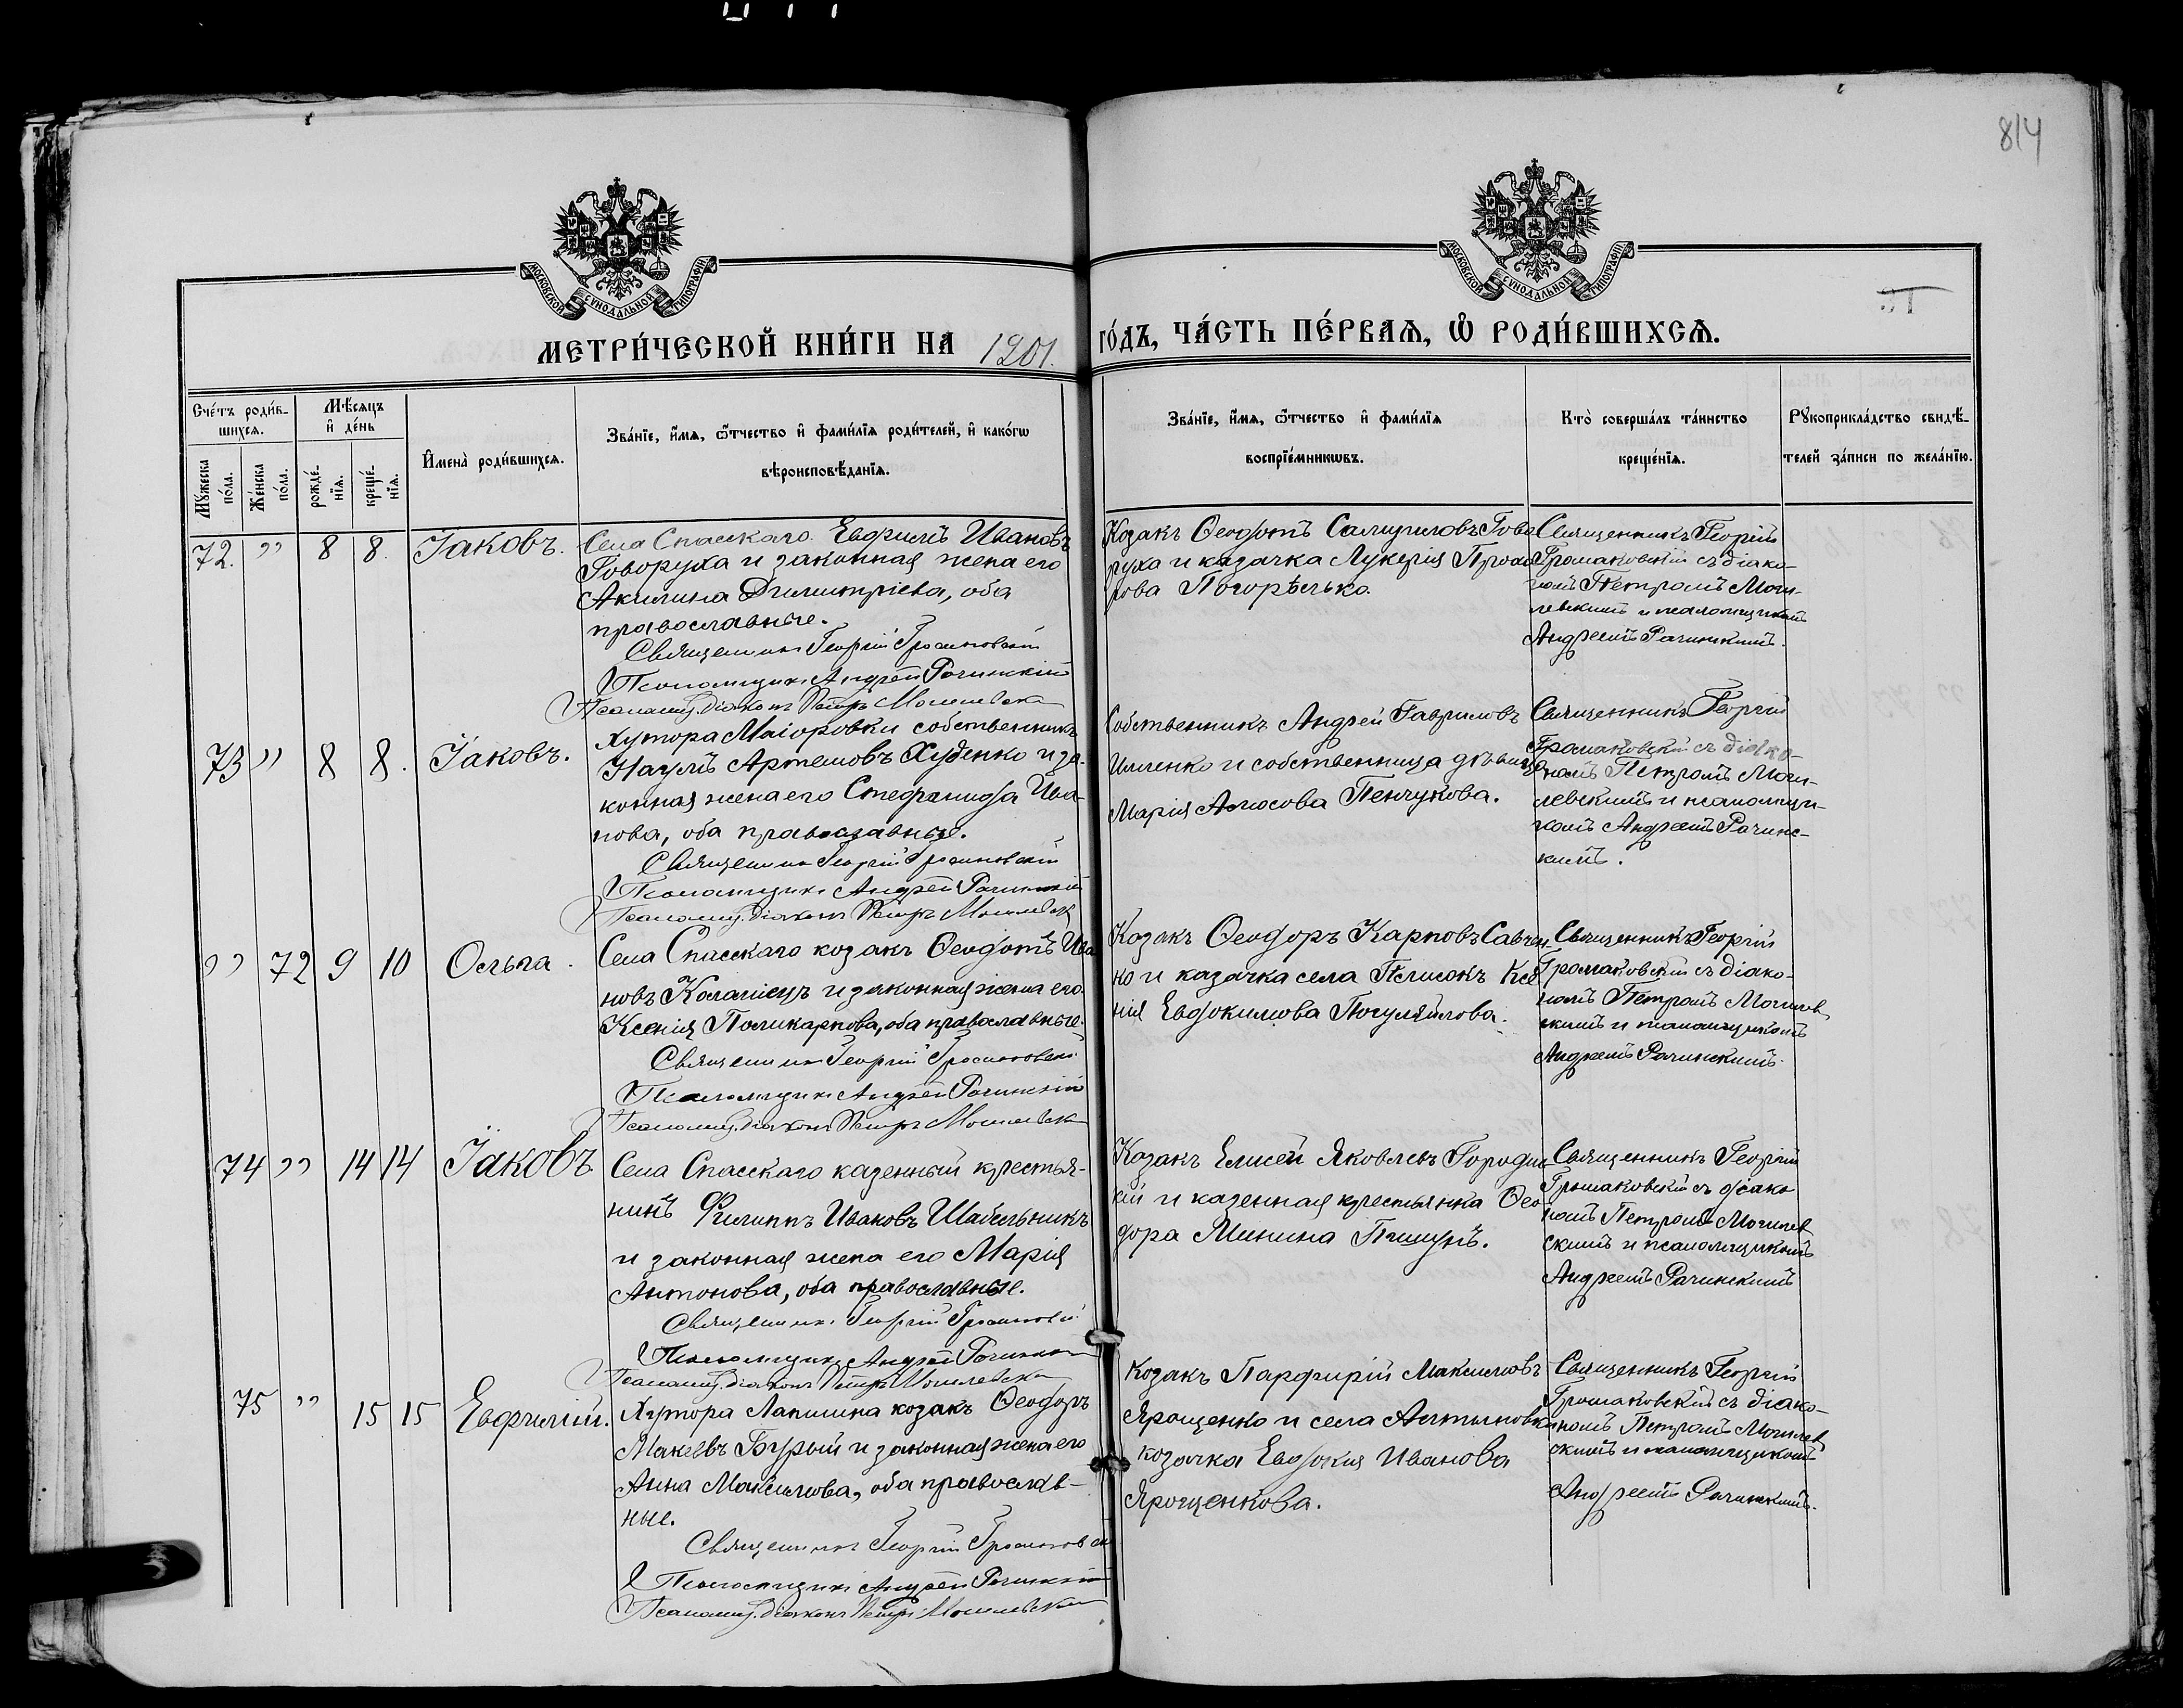 814
МОСКОВСКОЙ СУНОДАЛЬНОЙ ТИПОГРАФІИ
МОСКОВСКОЙ СУНОДАЛЬНОЙ ТИПОГРАФІИ
МЕТРИ́ЧЕСКОЙ КНИ́ГИ НА 1901.
ГО́ДЪ, ЧА́СТЬ ПЕ́РВАѦ, Ѡ҆ РОДИ́ВШИХСѦ.
Сче́тъ роди́в-
шихсѧ.
Мꙋ́жеска
по́ла.
Же́нска
по́ла.
Мѣ́сѧцъ
и҆ де́нь
рожде́-
нїѧ.
креще́-
нїѧ.
И҆мена̀ роди́вшихсѧ.
Зва́нїе, и҆́мѧ, ѻ҆́тчество и҆ фами́лїѧ роди́телей, и҆ како́гѡ
вѣроисповѣ́данїѧ.
Зва́нїе, и҆́мѧ, ѻ҆́тчество и҆ фами́лїѧ
воспрїе́мникѡвъ.
Кто̀ соверша́лъ та́инство
креще́нїѧ.
Рꙋкоприкла́дство свидѣ́-
телей за́писи по жела́нїю.
72. " 8 8. Іаковъ.
Села Спасскаго Евфимъ Ивановъ
Говоруха и законная жена его
Акилина Димитріева, оба
православные.
Священникъ Георгій Громаковскій
Псаломщикъ Андрей Рачинскій
Псаломщ. діаконъ Петръ Могилевскій
Козакъ Ѳеодотъ Самуиловъ Гово
руха и казачка Лукерія Прохо
рова Погорѣлько.
Священникъ Георгій
Громаковскій съ діако-
номъ Петромъ Моги-
левскимъ и псаломщикомъ
Андреемъ Рачинскимъ.
73 " 8 8. Іаковъ.
Хутора Маіоровки собственникъ
Наумъ Артемовъ Худенко и за-
конная жена его Стефанида Ива-
нова, оба православные.
Священникъ Георгій Громаковскій
Псаломщикъ Андрей Рачинскій
Псаломщ. діаконъ Петръ Могилевск
Собственникъ Андрей Гавриловъ
и собственница дѣвица
Марія Пенчукова.
Священникъ Георгій
Громаковскій съ діако-
номъ Петромъ Моги-
левскимъ и псаломщи-
комъ Андреемъ Рачинс-
кимъ.
" 72 9 10 Ольга.
Села Спасскаго козакъ Ѳеодотъ Ива
новъ Коломіецъ и законная жена его
Ксенія Поликарпова, оба православные.
Священникъ Георгій Громаковскій
Псаломщикъ Андрей Рачинскій
Псаломщ. діаконъ Петръ Могилевск
Козакъ Ѳеодоръ Карповъ Савчен-
ко и казачка села Ксе
нія Евдокимова Погуляйлова.
Священникъ Георгій
Громаковскій съ діако-
номъ Петромъ Могилев
скимъ и псаломщикомъ
Андреемъ Рачинскимъ.
74 " 14 14 Іаковъ
Села Спасскаго казенный крестья-
нинъ Филиппъ Ивановъ Шабельникъ
и законная жена его Марія
Антонова, оба православные.
Священникъ Георгій Громаковскій
Псаломщикъ Андрей Рачинскій
Псаломщ. діаконъ Петръ Могилевскій
Козакъ Елисей Яковлевъ Городис
кій и казенная крестьянка Ѳео
дора Минина
Священникъ Георгій
Громаковскій съ діако
номъ Петромъ Могилев
скимъ и псаломщикомъ
Андреемъ Рачинскимъ
75 " 15 15 Евфимій.
Хутора Лапшина козакъ Ѳеодоръ
Макеевъ Бурый и законная жена его
Анна Максимова, оба православ-
ные.
Священникъ Георгій Громаковскій
Псаломщикъ Андрей Рачинскій
Псаломщ. діаконъ Петръ Могилевскій
Козакъ Парфирій Максимовъ
Ярощенко и села Алтыновки
козачка Евдокія Иванова
Ярощенкова.
Священникъ Георгій
Громаковскій съ діако-
номъ Петромъ Могилев
скимъ и псаломщикомъ
Андреемъ Рачинскимъ.